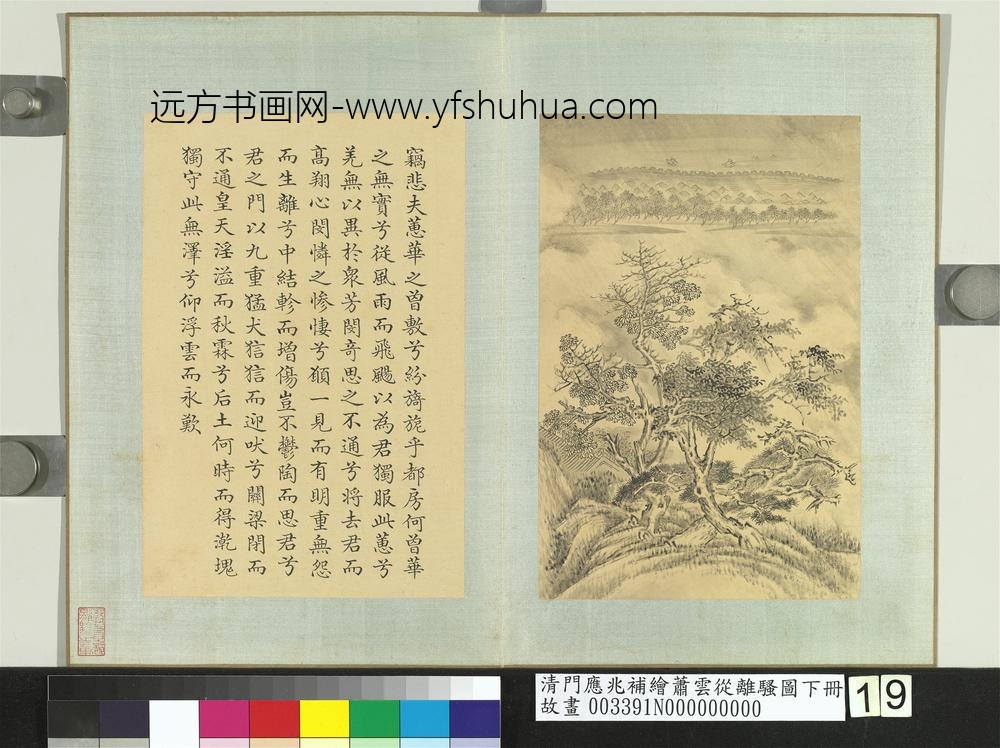 远方书画网-www.yfshuhua.com
竊悲夫蕙華之曽敷兮紛旖旎乎都房何曽華
之無實兮從風雨而飛颺以為君獨服此蕙兮
羌無以異於衆芳閔竒思之不通兮将去君而
髙翔心閔憐之惨悽兮願一見而有明重無怨
而生離兮中結軫而增傷豈不鬱陶而思君兮
君之門以九重猛犬狺狺而迎吠兮關梁閉而
不通皇天淫溢而秋霖兮后土何時而得漧塊
獨守此無澤兮仰浮雲而永歎
清門應兆補繪蕭雲從離騷圖下冊
故畫 003391N000000000
19